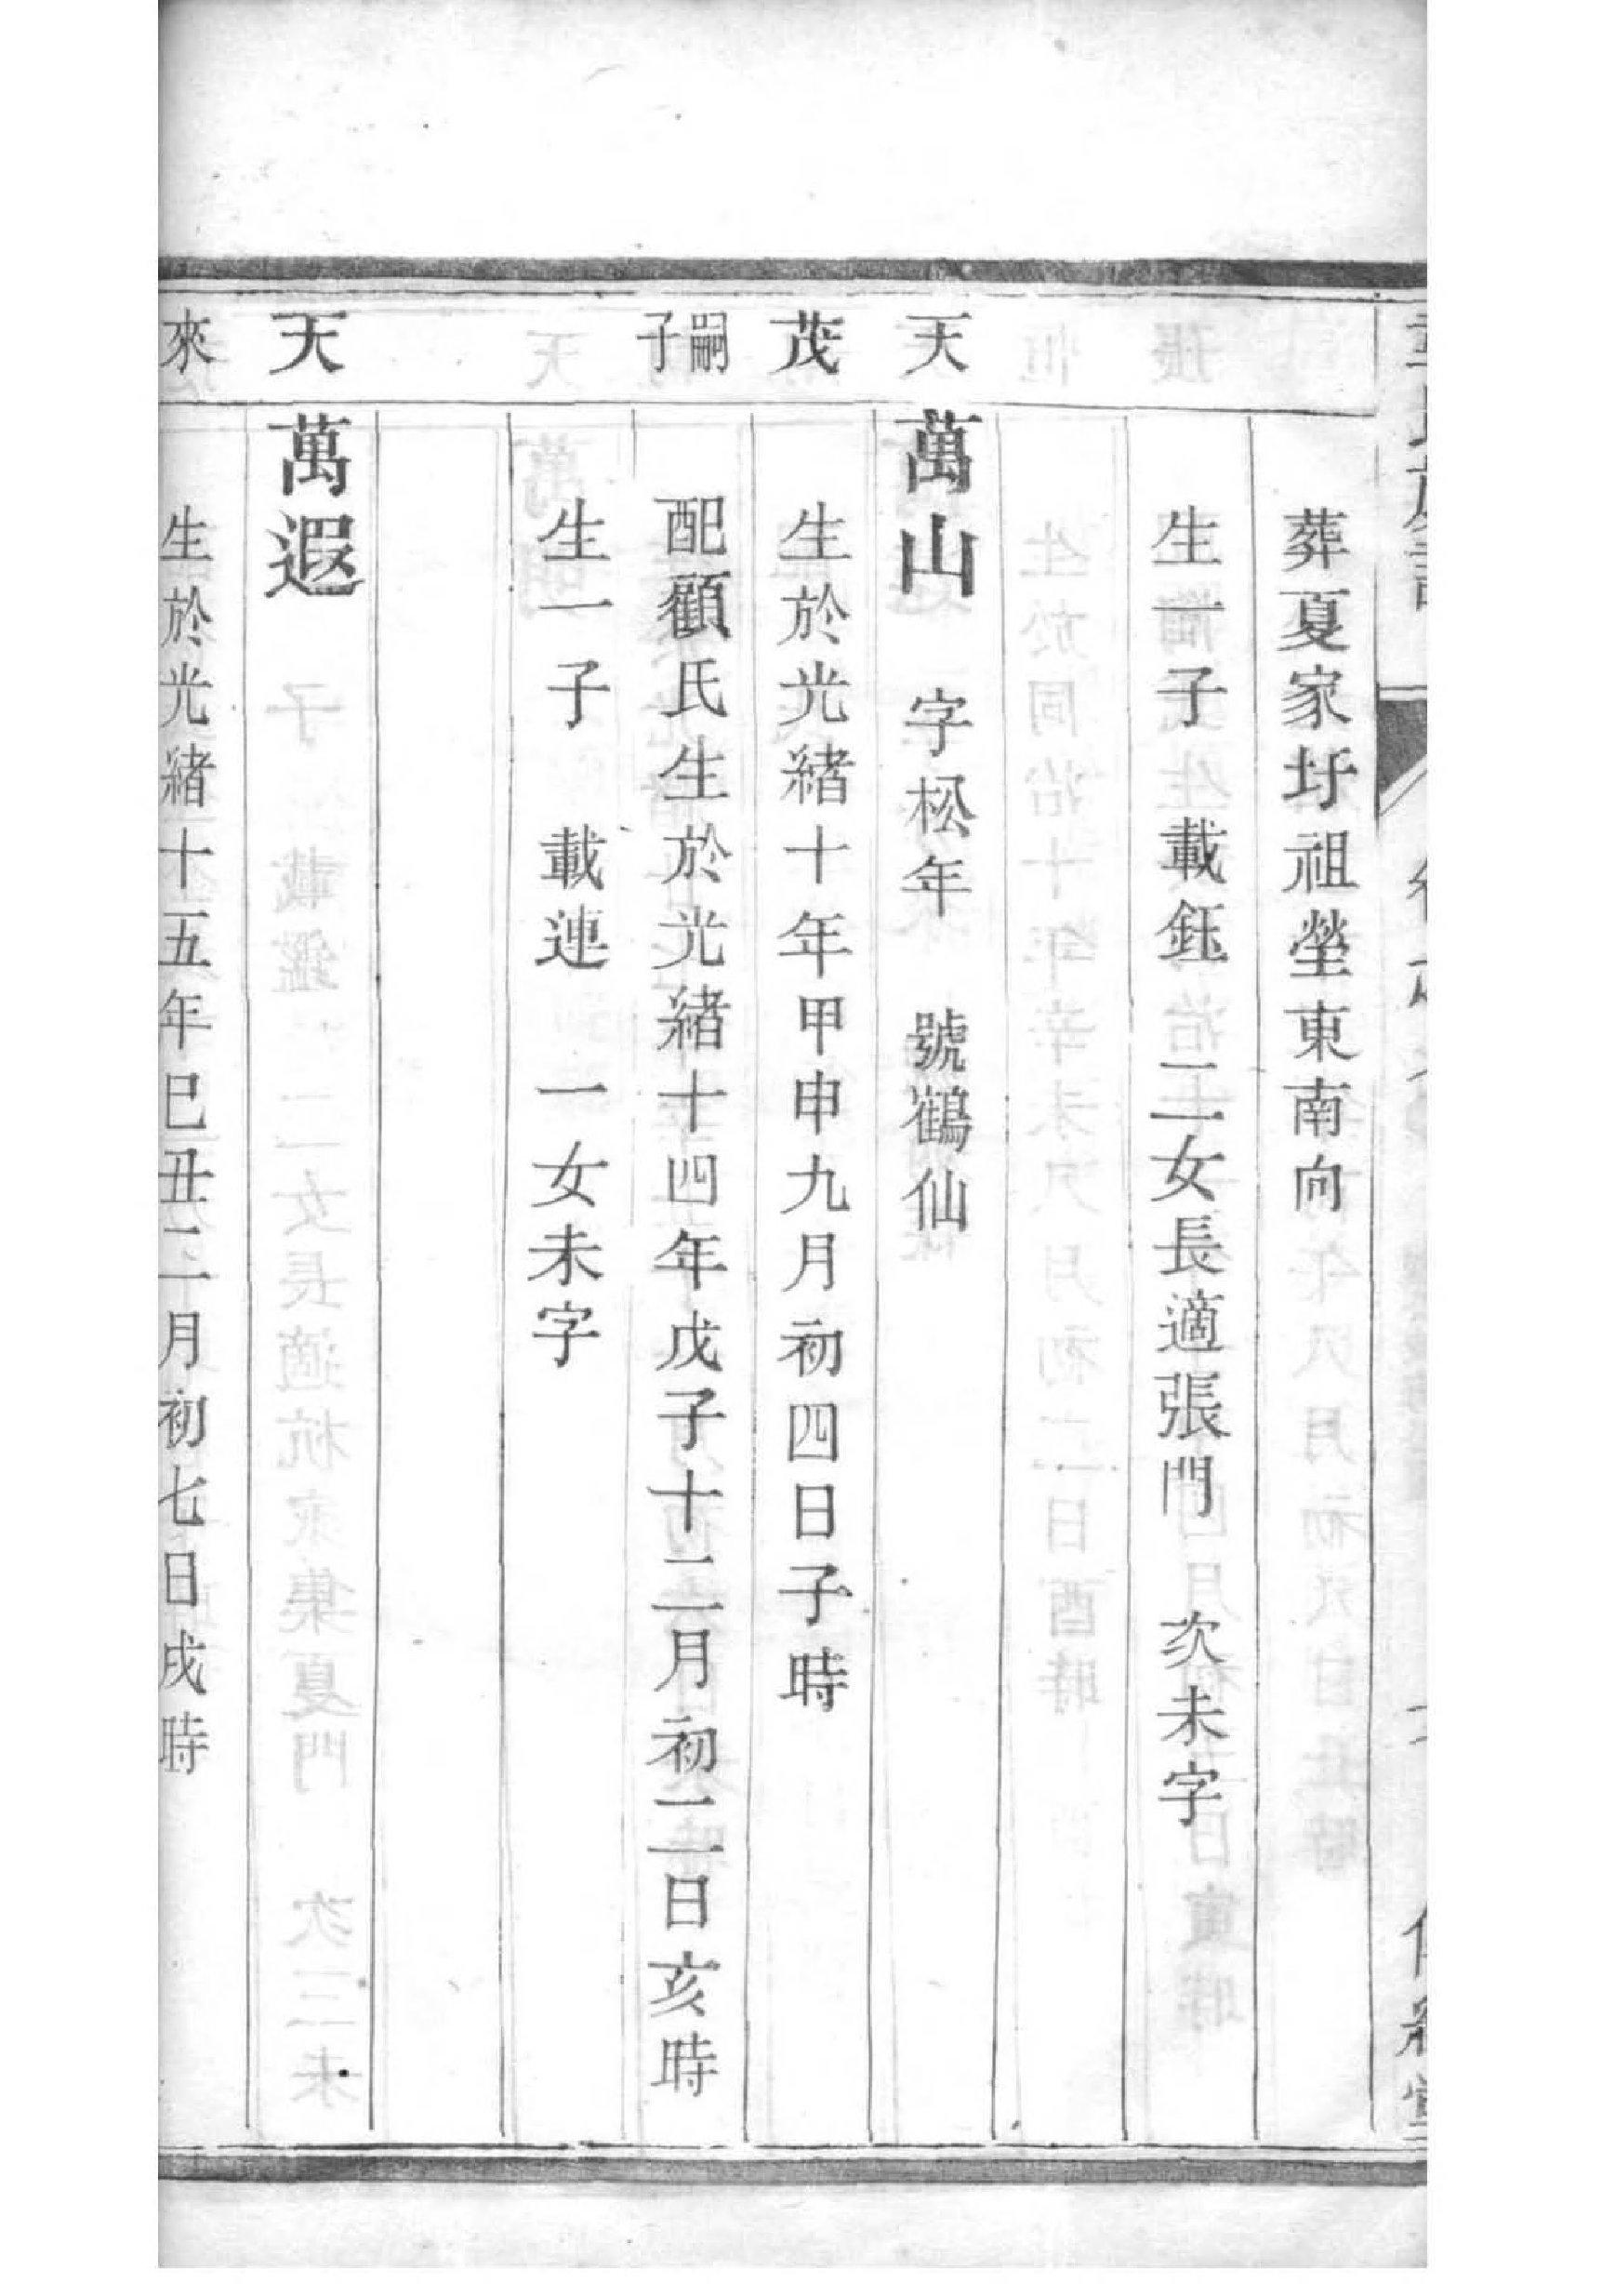 葬夏家圩祖塋東南向
生一子載鈺 二女長適張門 次未字
天 萬山 字松年 號鶴仙
茂 生於光緒十年甲申九月初四日子時
嗣子 配顧氏生於光緒十四年戊子十二月初二日亥時
生一子 載連 一女未字
天 萬遐
來 生於光緒十五年巳丑二月初七日戌時